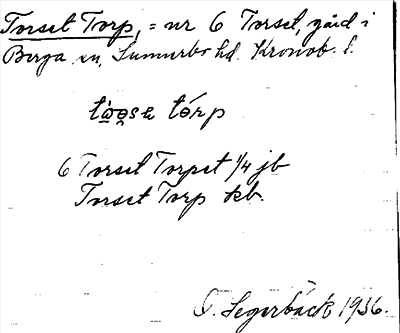 Torset Torp, = nr 6 Torset, gård i
Berga sn, Sunnerbo hd. Kronob. l.
6 Torset Torpet 1/4 jb
Torset Torp kb.
O. Segerbäck 1936.